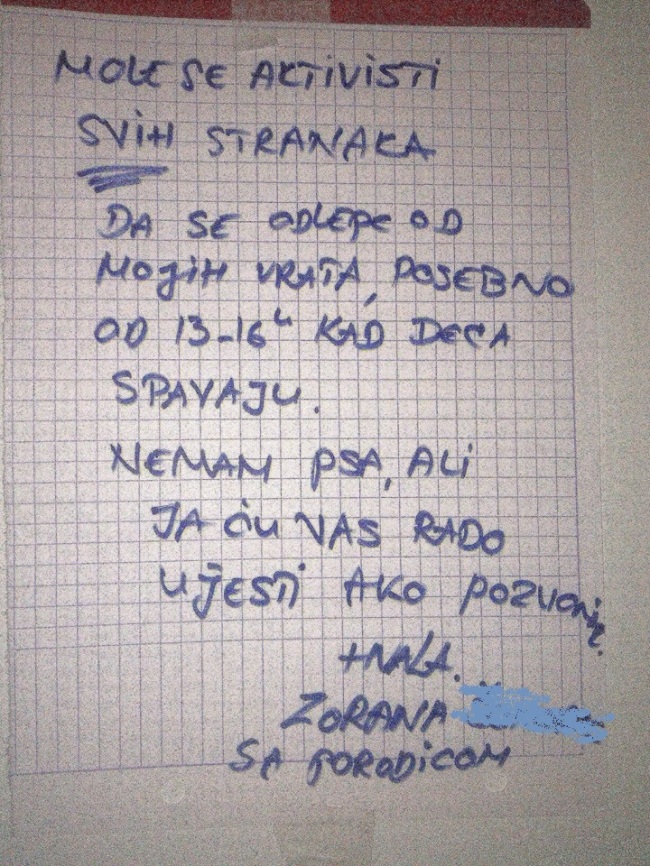 MOLE SE AKTIVISTI
SVIH STRANAKA
DA SE ODLEPE OD
MOJIH VRATA, POSEBNO
OD 13-16h KAD DECA
SPAVAJU.
NEMAM PSA, ALI
JA ĆU VAS RADO
UJESTI AKO POZVONI
HVALA.
ZORANA
SA PORODICOM